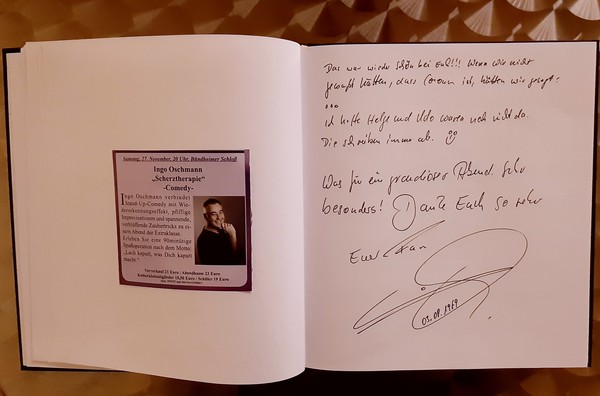 Samstag, 27. November, 20 Uhr, Bündheimer Schloß
Ingo Oschmann
„Scherztherapie“
-Comedy-
Ingo Oschmann verbindet
Stand-Up-Comedy mit Wie-
dererkennungseffekt, pfiffige
Improvisationen und spannende,
verblüffende Zaubertricks zu ei-
nem Abend der Extraklasse.
Erleben Sie eine 90minütige
Spaßoperation nach dem Motto:
„Lach kaputt, was Dich kaputt
macht.“
Vorverkauf 21 Euro / Abendkasse 23 Euro
Kulturklubmitglieder 18,50 Euro / Schüler 19 Euro
Das war wieder schön bei Euch!!! Wenn wir nicht
gewußt hätten, dass Corona ist, hätten wir gesagt:
...
Ich hoffe Helge und Udo waren noch nicht da.
Die schreiben immer ab.
Was für ein grandioser Abend. Sehr
besonders! Danke Euch so sehr
Euer
03.08.1969